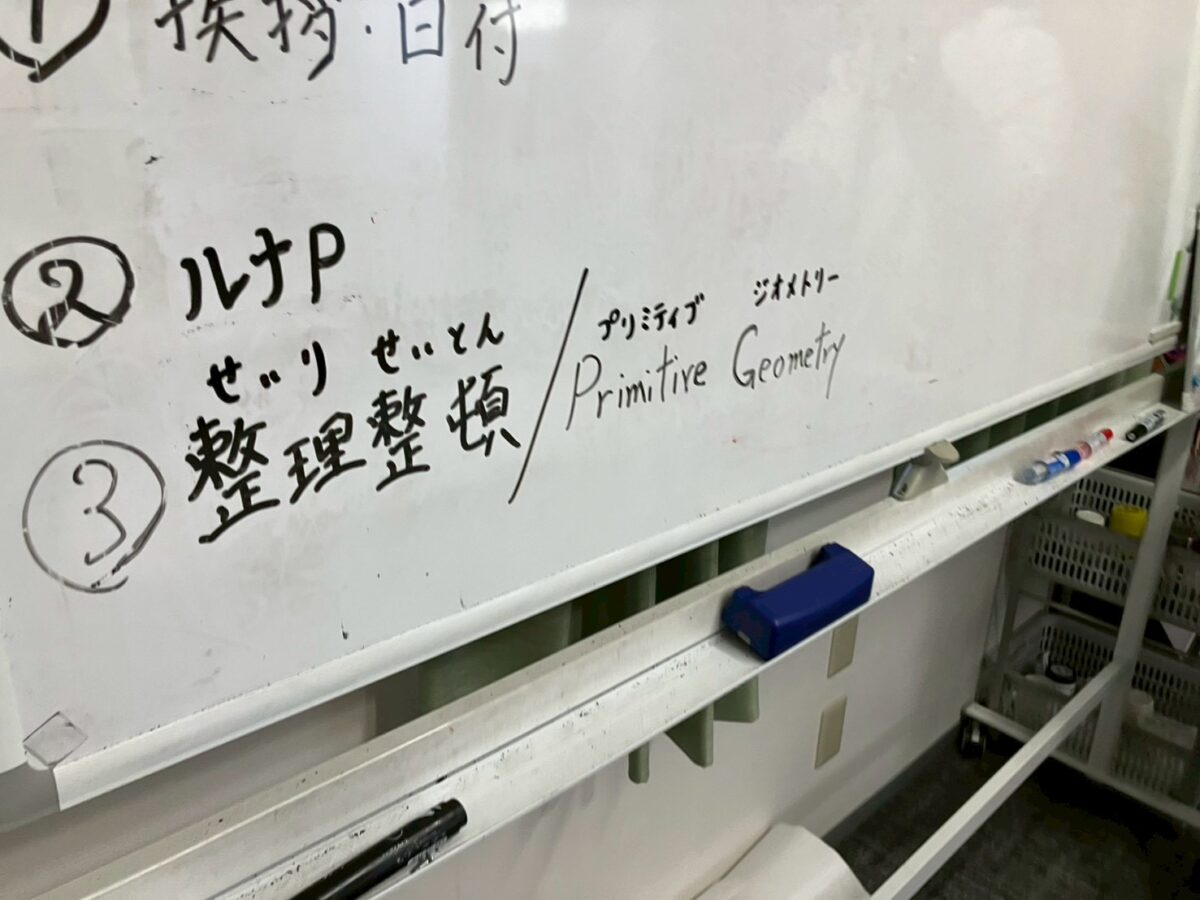 ① 挨拶・日付
② ルナP
せいり せいとん プリミティブ ジオメトリー
③ 整理整頓 / Primitive Geometry